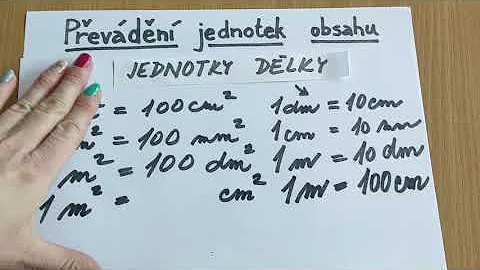 Převádění jednotek obsahu
JEDNOTKY DÉLKY
= 100 cm²
= 100 mm²
m² = 100 dm²
1 m² = cm²
1 dm = 10 cm
1 cm = 10 mm
1 m = 10 dm
1 m = 100 cm